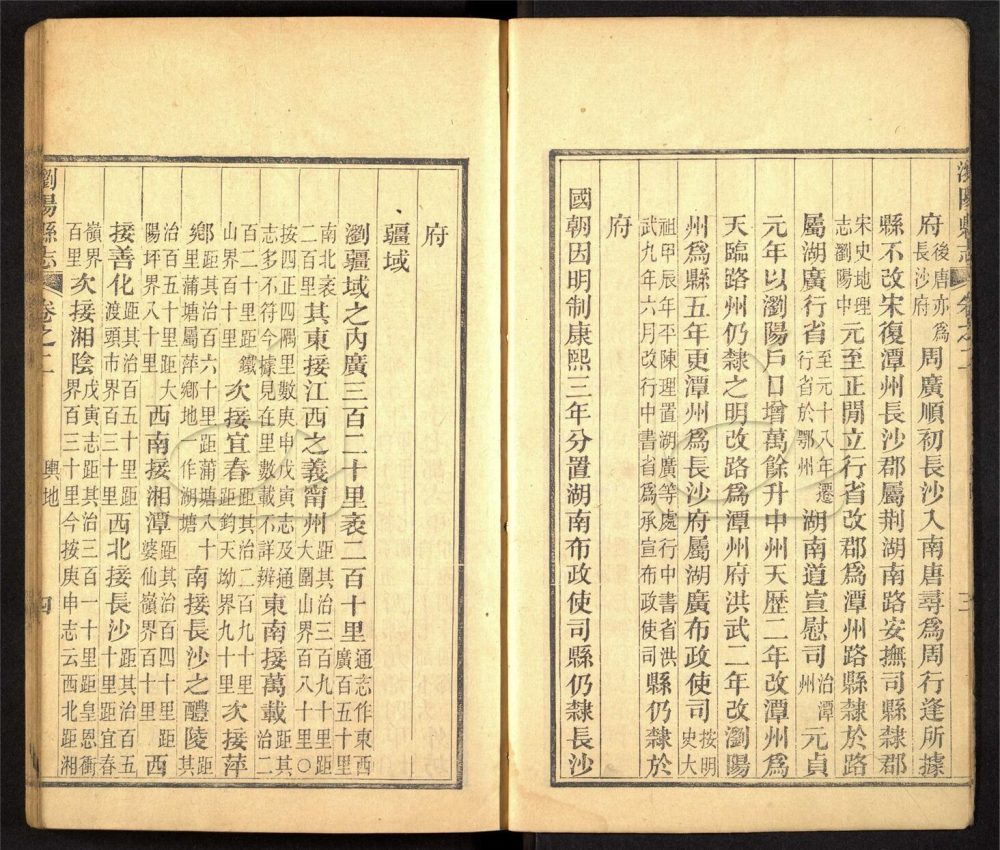 府後唐亦爲長沙府周廣順初長沙入南唐尋爲周行逢所據
縣不改宋復潭州長沙郡屬荆湖南路安撫司縣隸郡
宋史地理志瀏陽中元至正閒立行省改郡爲潭州路縣隸於路
屬湖廣行省至元十八年遷行省於鄂州湖南道宣慰司治潭州元貞
元年以瀏陽戶口增萬餘升中州天歷二年改潭州爲
天臨路州仍隸之明改路爲潭州府洪武二年改瀏陽
州爲縣五年更潭州爲長沙府屬湖廣布政使司按明史大
祖甲辰年平陳理置湖廣等處行中書省洪武九年六月改行中書省爲承宣布政使司縣仍隸於
府
國朝因明制康熙三年分置湖南布政使司縣仍隸長沙
府
疆域
瀏疆域之內廣三百二十里袤二百十里通志作東西廣百五十里
南北袤二百里其東接江西之義甯州距其治三百九十里距大圍山界百八十里○
按四正四隅里數庚申戊寅志及通志多不符今據見在里數載不詳辨東南接萬載距其治二
百二十里距鐵山界百十里次接宜春距其治二百九十里距鈞天坳界九十里次接萍
鄉距其治百六十里距蒲塘八十里蒲塘屬萍鄉地作湖塘南接長沙之醴陵距其
治百五十里距大陽坪界八十里西南接湘潭距其治百四十里距婆仙嶺界百十里西
接善化距其治百五十里距渡頭市界百三十里西北接長沙距其治百五十里距宜春
嶺界百里次接湘陰戊寅志距其治三百一十里距皇恩衝界百三十里今按庚申志云西北距湘
瀏陽縣志 卷之二 輿地 四